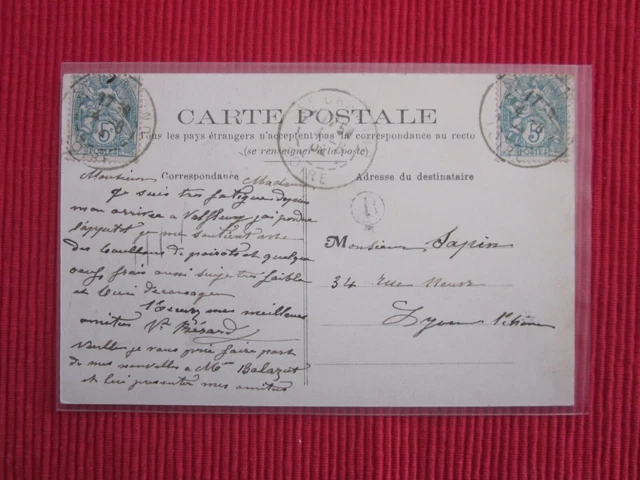 CARTE POSTALE
Tous les pays étrangers n'acceptent pas la correspondance au recto
(se renseigner à la poste)
Correspondance
Adresse du destinataire
Monsieur Madame
Je suis très fatiguée depuis
mon arrivée a j'ai perdu
l'appétit je me soutient avec
des bouillons de et quelques
oeufs frais aussi suis je très faible
et bien
mes meilleures
amitiés Vve Bézard
Veuille je vous prie faire part
de mes nouvelles a Mme Balazut
et lui présenter mes amitiés
Monsieur Sapin
34 rue Neuve
Lyon
5
5
1